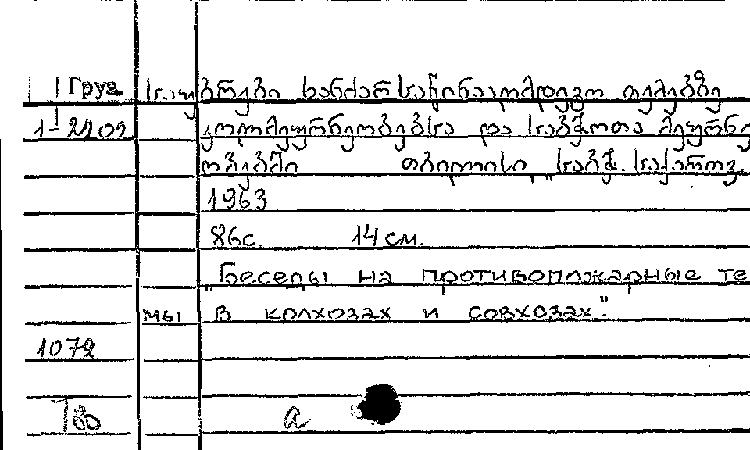 Груз. საუბრები ხანძარსაწინააღმდეგო თემებზე
1-2202 კოლმეურნეობებსა და საბჭოთა მეურნე
ობებში თბილისი „საბჭ. საქართვ.
1963
86с. 14 см.
„Беседы на противопожарные те
мы в колхозах и совхозах".
1072
а